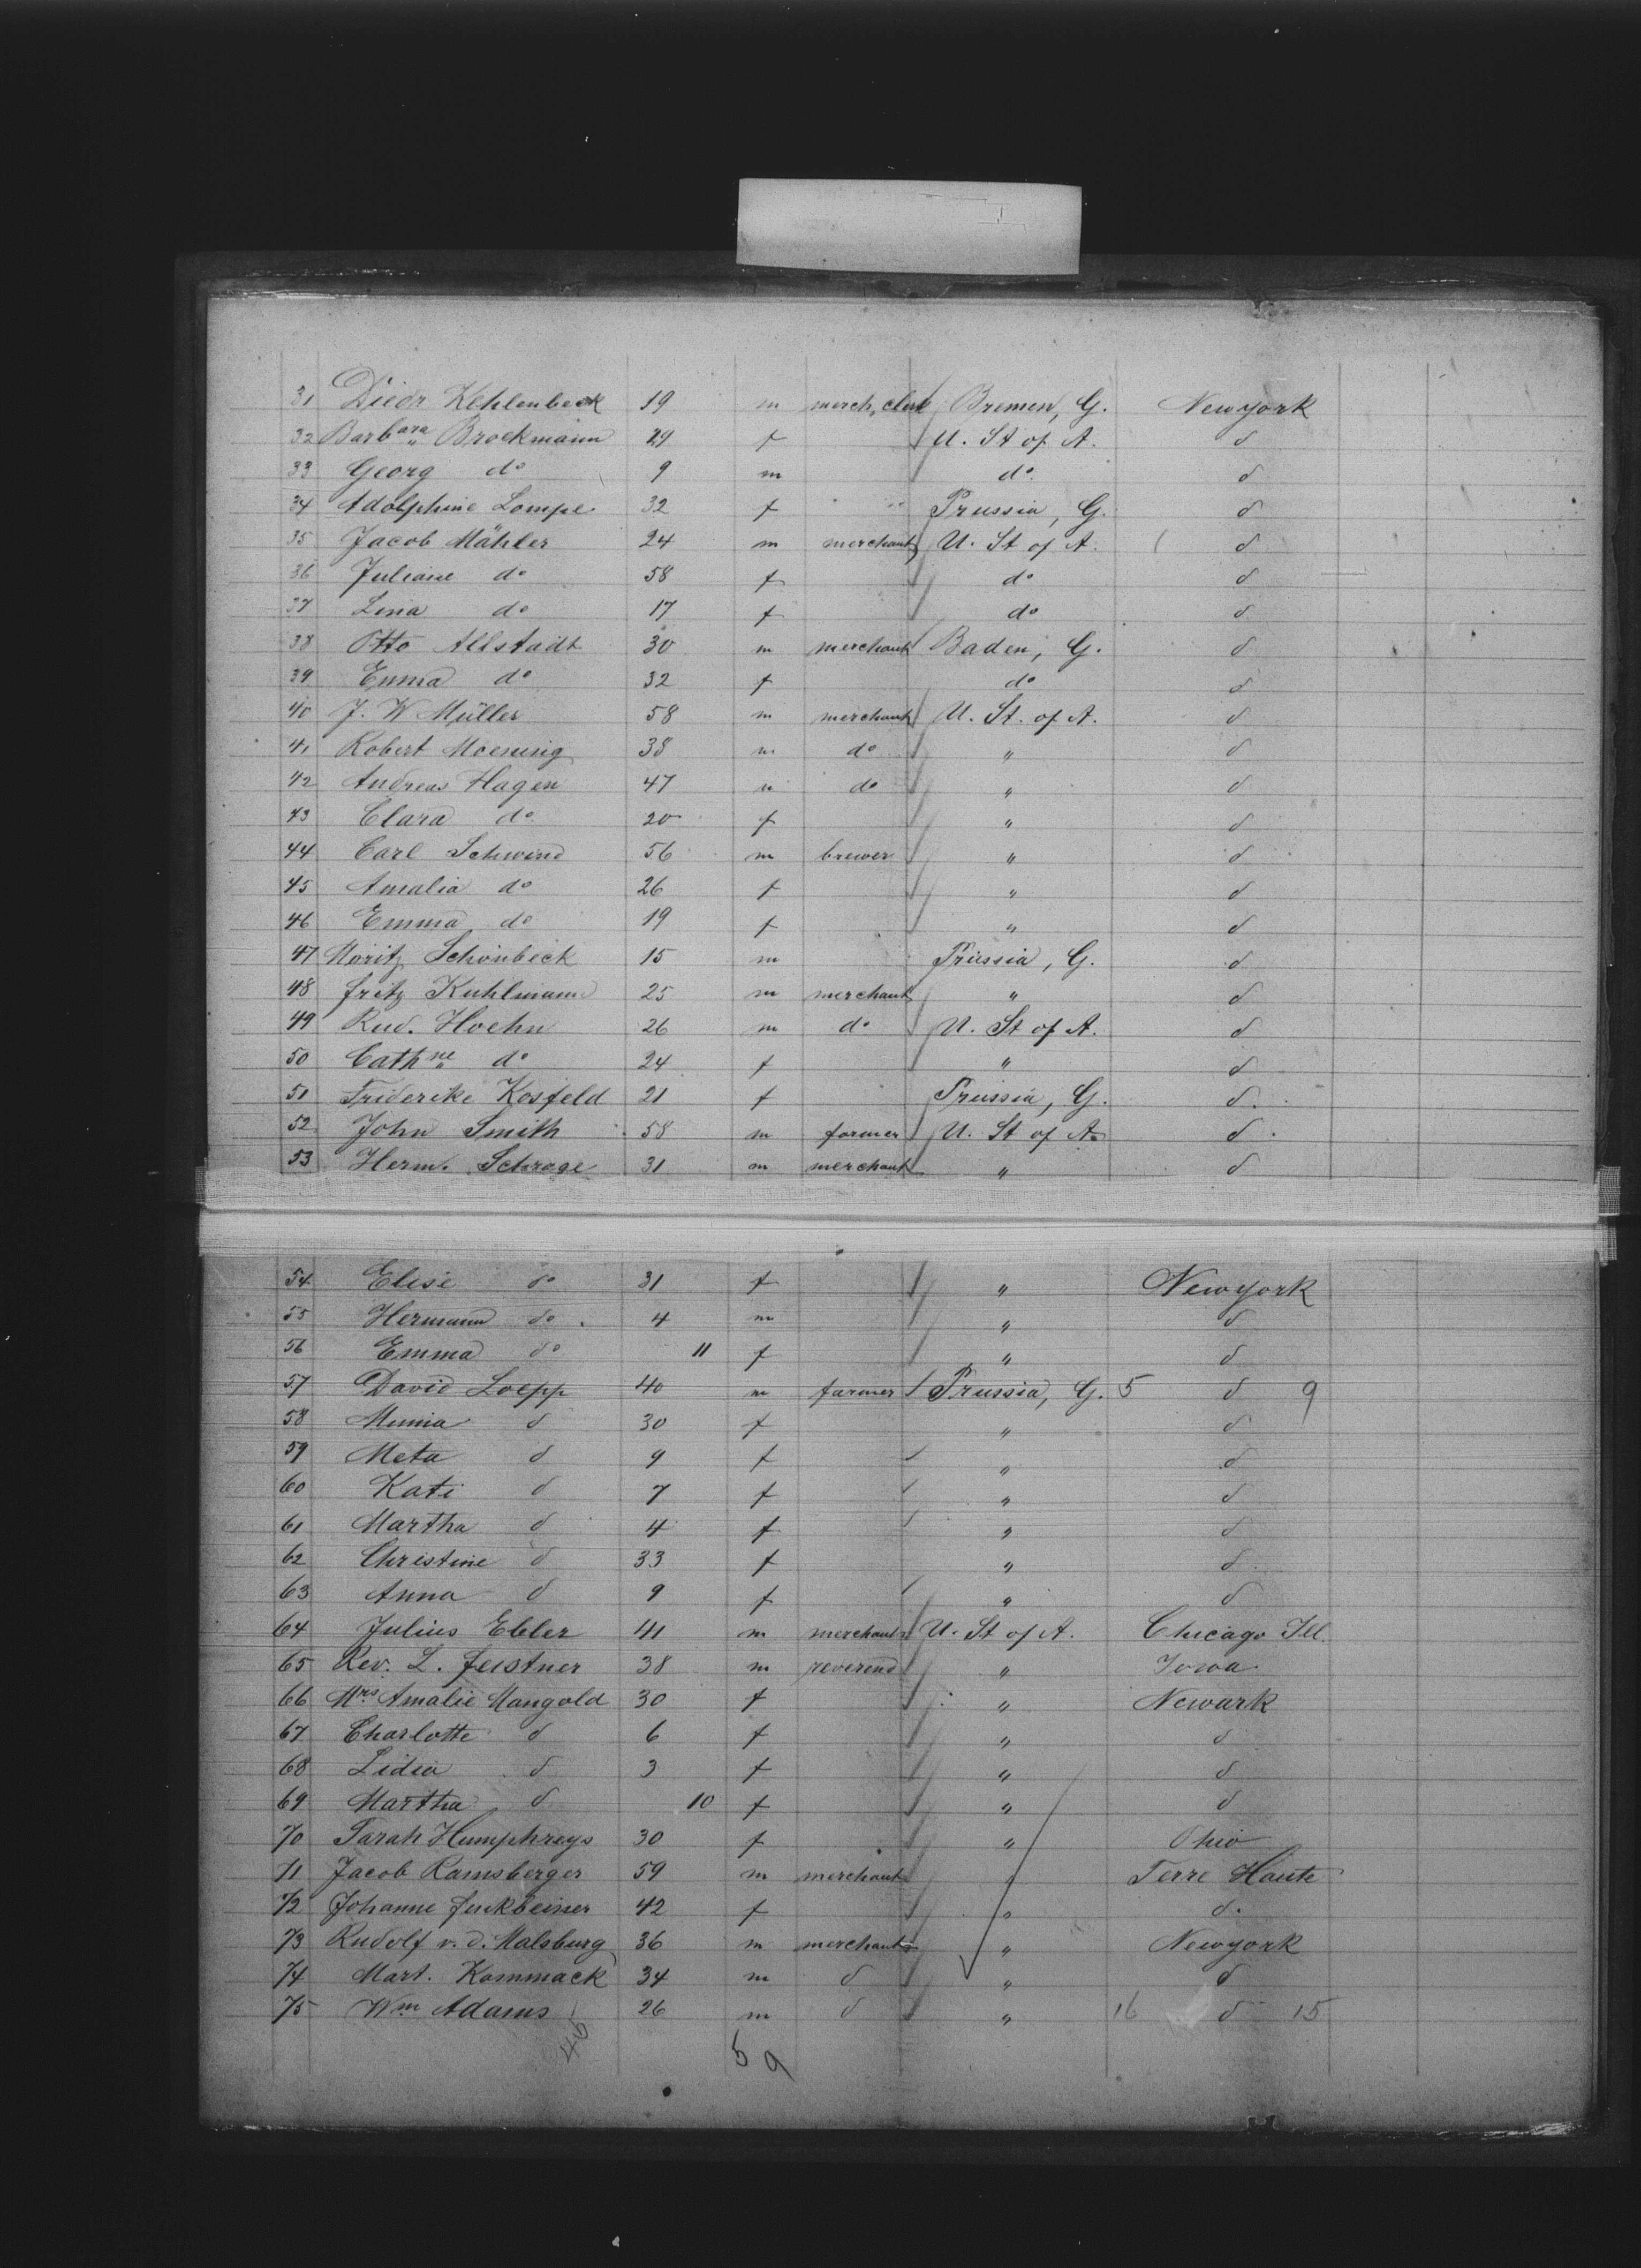 31 Diedr Kehlenbeck 19 m merch, clerk Bremen, G. Newyork
32 Barbara Brockmann 29 f U. St of A. d
33 Georg do 9 m do. d
34 Adolphine Lompe 32 f Prussia, G. d
35 Jacob Mähler 24 m merchant U. St of A. d
36 Juliane do 58 f do d
37 Lina do 17 f do d
38 Otto Allstadt 30 m merchant Baden, G. d
39 Emma do 32 f do d
40 J. W Müller 58 m merchant U. St. of A. d
41 Robert Moennig 38 m do " d
42 Andreas Hagen 47 m do " d
43 Clara do 20 f " d
44 Carl Schwind 56 m brewer " d
45 Amalia do 26 f " d
46 Emma do 19 f " d
47 Moritz Schönbeck 15 m Prussia, G. d
48 Fritz Kuhlmann 25 m merchant " d
49 Rud. Hoehn 26 m do U. St of A. d
50 Cathne do 24 f " d
51 Friderike Kosfeld 21 f Prussia, G. d.
52 John Smith 58 m farmer U. St of A. d.
53 Herm. Schrage 31 m merchant " d
54 Elise do 31 f " Newyork
55 Hermann do. 4 m " d
56 Emma do 11 f " d
57 David Loepp 40 m farmer Prussia, G. 5 d 9
58 Minna d 30 f " d
59 Meta d 9 f " d
60 Kati d 7 f " d
61 Martha d 4 f " d
62 Christine d 33 f " d
63 Anna d 9 f " d
64 Julius Ebler 41 m merchant U. St of A. Chicago Ill.
65 Rev. L. Feistner 38 m reverend " Iowa
66 Mrs Amalie Mangold 30 f " Newark
67 Charlotte d 6 f " d
68 Lidia d 3 f " d
69 Martha d 10 f " d
70 Sarah Humphreys 30 f " Ohio
71 Jacob Ramsberger 59 m merchant " Terre Haute
72 Johanne Finkbeiner 42 f " d.
73 Rudolf v. d. Malsburg 36 m merchant " Newyork
74 Mart. Kammack 34 m d " d
75 Wm Adams 26 m d " 16 d 15
46 5 9